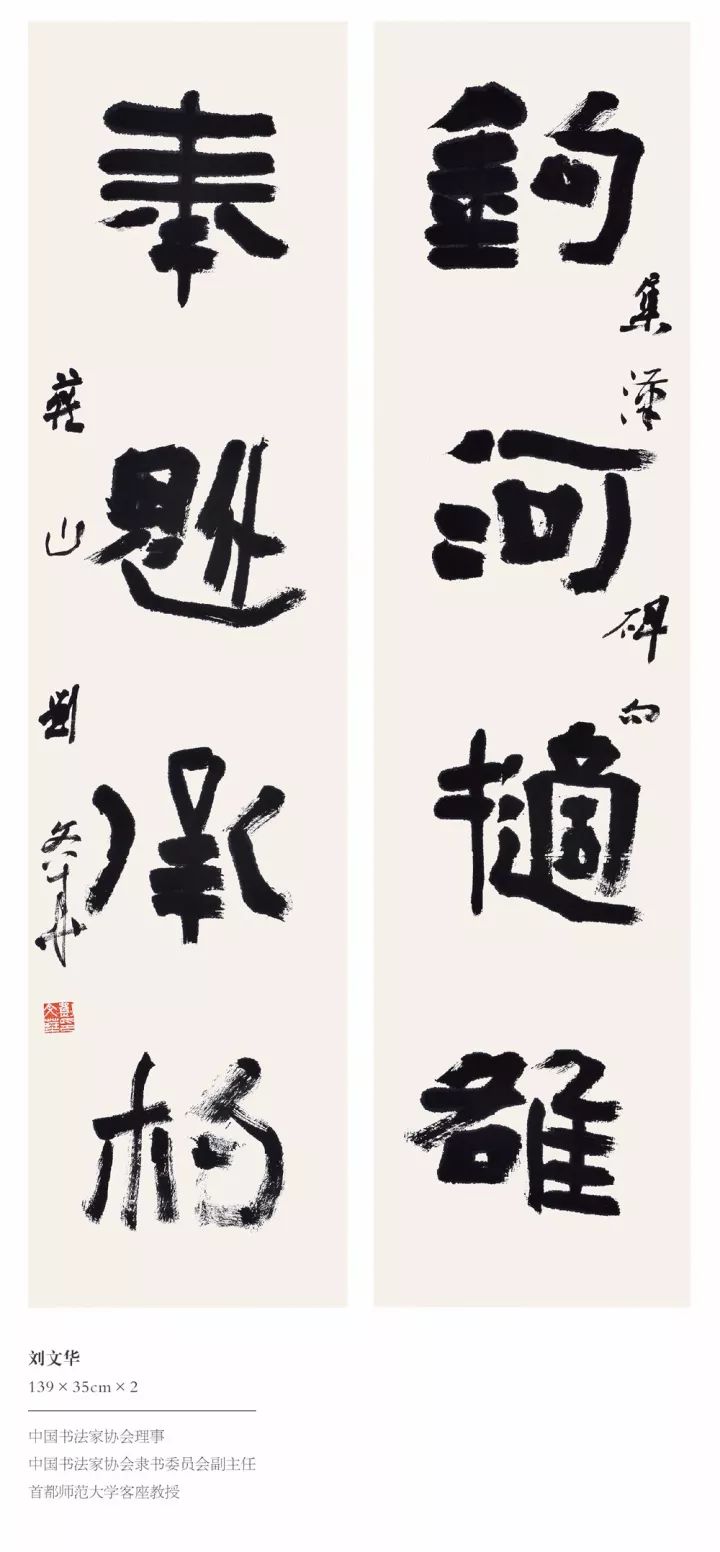 鉤河擿雒
集漢碑句
奉魁承杓
燕山劉文華
刘文华
139×35cm×2
中国书法家协会理事
中国书法家协会隶书委员会副主任
首都师范大学客座教授